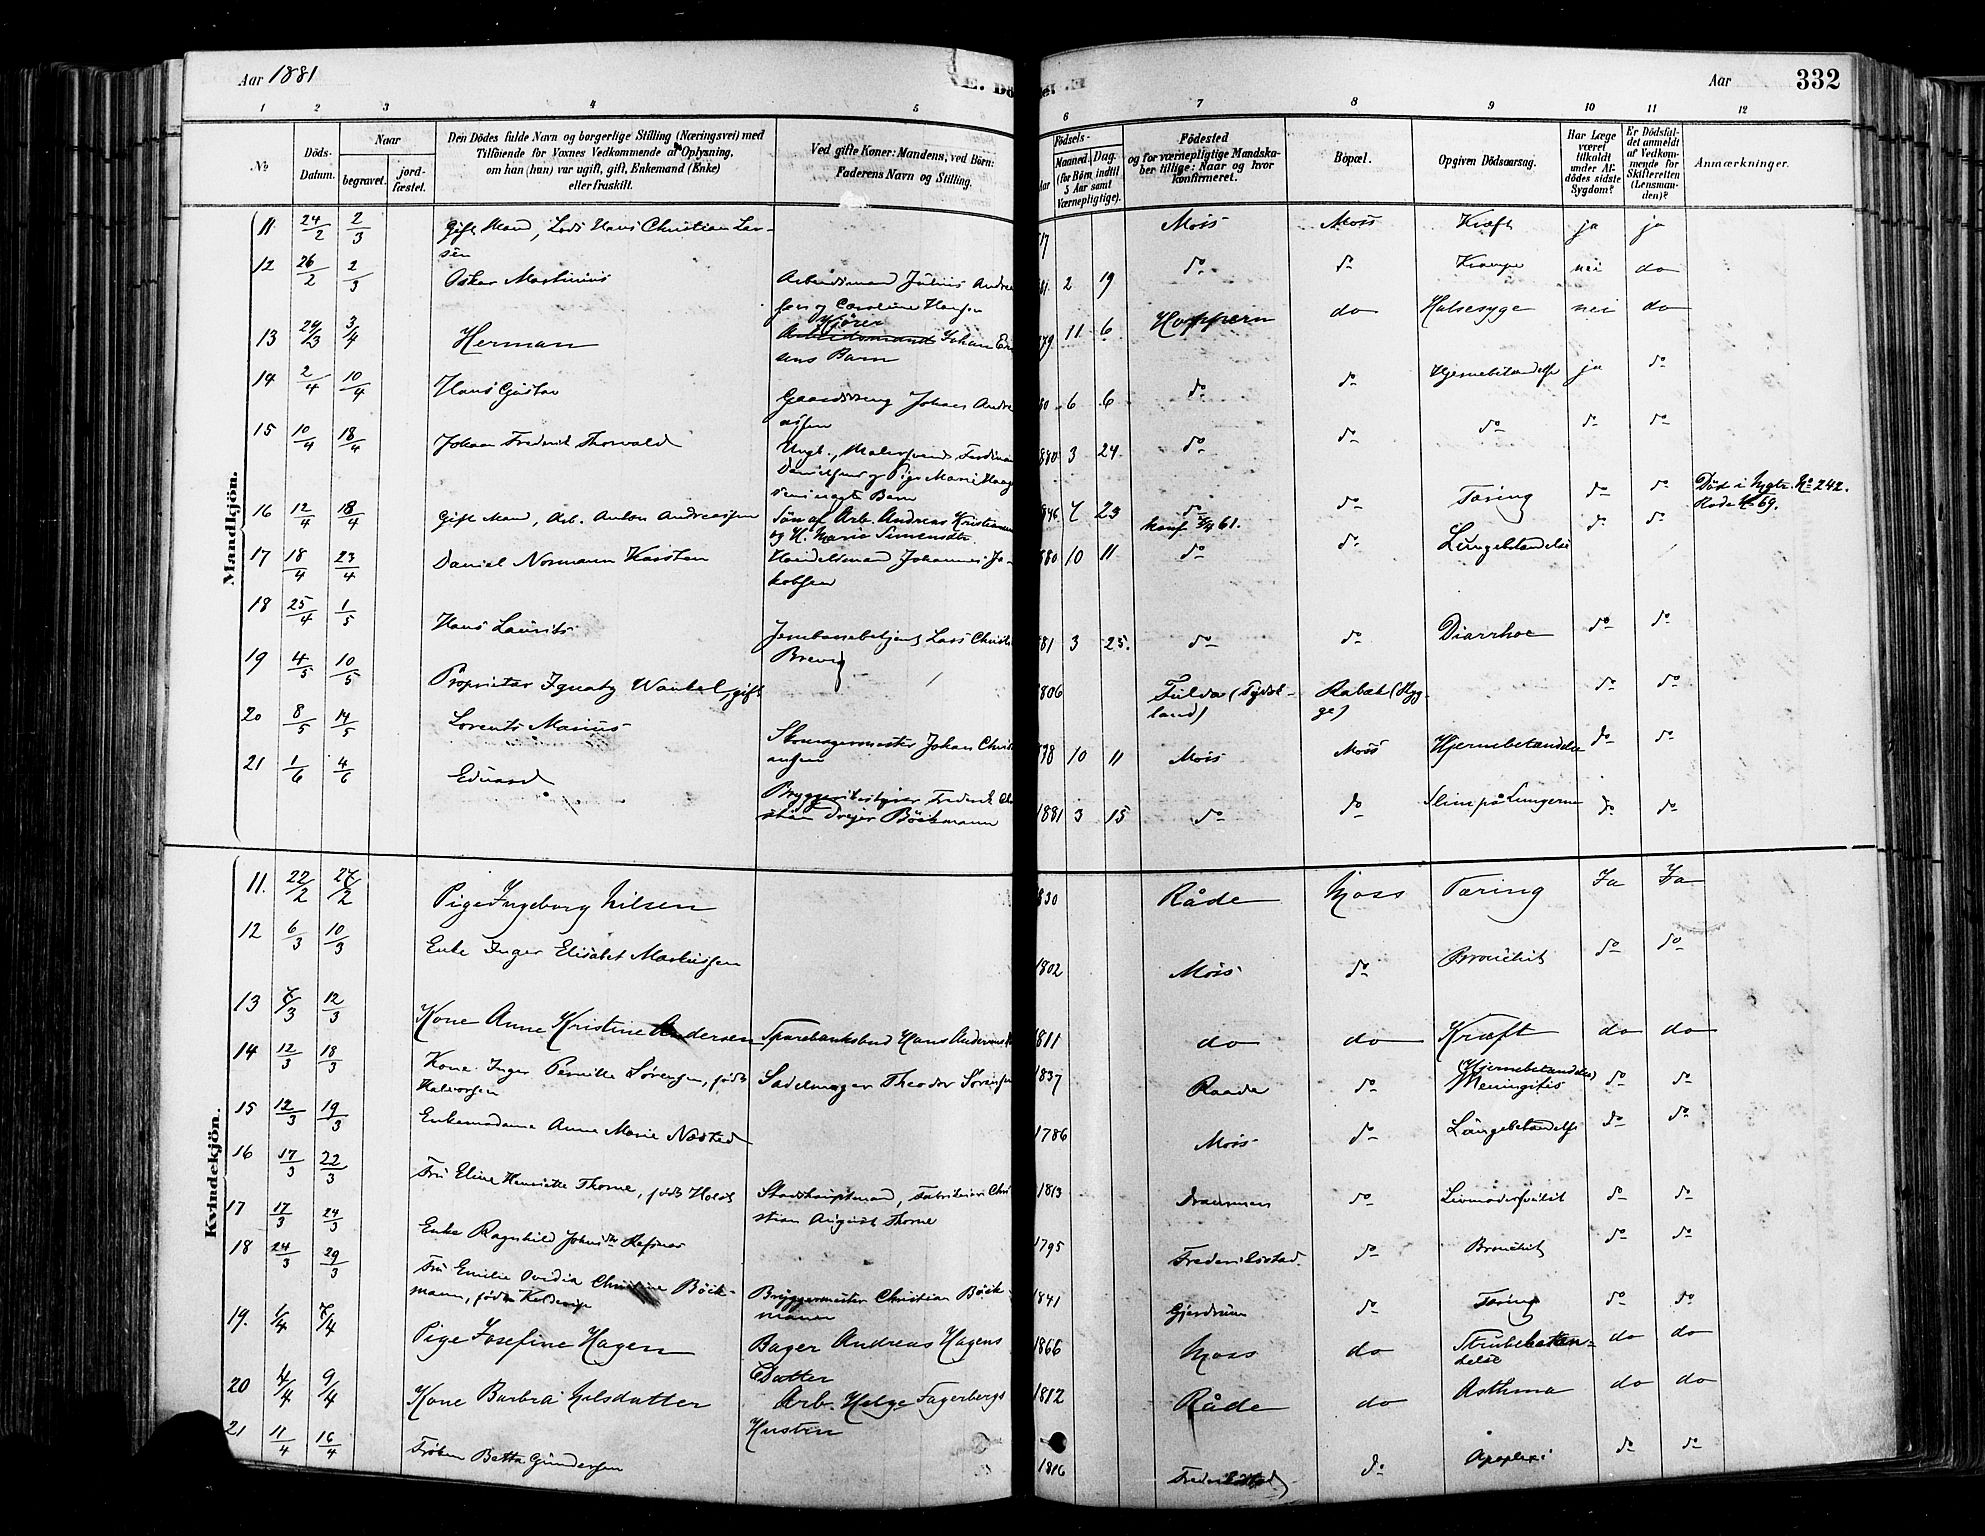 Aar 1881
Aar 332
1 2 3 4 5 6 7 8 9 10 11 12
No
Döds-Datum.
Naar
begravet.
jord-fæstet.
Den Dödes fulde Navn og borgerlige Stilling (Næringsvei) med
Tilföiende for Voxnes Vedkommende af Oplysning,
om han (hun) var ugift, gift, Enkemand (Enke)
eller fraskilt.
Ved gifte Koner: Mandens, ved Börn:
Faderens Navn og Stilling.
Födsels-
Aar Maaned. Dag.
(for Börn indtil
5 Aar samt
Værnepligtige).
Födested
og for værnepligtige Mandska-
ber tillige: Naar og hvor
konfirmeret.
Bopæl.
Opgiven Dödsaarsag.
Har Læge
været
tilkaldt
under Af-
dödes sidste
Sygdom?
Er Dödsfal-
det anmeldt
af Vedkom-
mende for
Skifteretten
(Lensman-
den)?
Anmærkninger.
Mandkjön.
11. 24/2 2/3 Gift Mand, Lods Hans Christian Lar-
sen 17 Moss Moss Kræft ja ja
12 26/2 2/3 Oskar Martinius Arbeidsmand Julius Andre
sen og Caroline Hansen 81. 2 19 do do Krampe nei do
13 29/3 3/4 Herman Kjörer
Arbeidsmand Johan Eri
sens Barn 79 11 6 Hoppern do Halsesyge nei do
14 2/4 10/4 Hans Gustav Gaardsdreng Johan Andre
assen 80 6 6 do do Hjernebetændelse ja do
15 10/4 18/4 Johan Frederik Thorvald Uegt., Malersvend Ferdinan
Danielsens og Pige Marie Haag
uægte Barn 1880 3 24 do do do do do
16 12/4 18/4 Gift Mand, Arb. Anton Andreassen Sön af Arb. Andreas Kristiansen
og H. Marie Simensdtr 1846 7 23 do
konf 61. do Tæring do do Död i Nygtr. No 242.
Rode No 69.
17 18/4 23/4 Daniel Normann Karsten Handelsmand Johannes Ja-
kobsen 1880 10 11 do do Lungebetændelse do do
18 25/4 1/5 Hans Laurits Jernbanebetjent Lars Christi
Brevig 81 3 25. do do Diarrhoe do do
19 4/5 10/5 Proprietær Ignatz Wankel, gift 1806 Fulda (Tydsk-
land) Kabæk (Ryg-
ge) do do
20 8/5 14/5 Lorents Marius Skomagermester Johan Christi
ansen 78 10 11 Moss Moss Hjernebetændelse do do
21 1/6 4/6 Eduard Bryggeribestyrer Frederik Chri
stian Dreyer Böckmann 1881 3 15 do do Slim på Lungerne do do
Kvindekjön.
11. 22/2 27/2 Pige Ingeborg Nilsen 830 Råde Moss Tæring Ja Ja
12 6/3 10/3 Enke Inger Elisabet Markussen 1802 Moss do Bronchit do do
13 7/3 12/3 Kone Anne Kristine Andersen Sparebanksbud Hans Andersens K 1811 do do Kræft do do
14 12/3 18/3 Kone Inger Pernille Sörensen, födt
Halvorsen Sadelmager Theodor Sörensen 1837 Raade do (Hjernebetændelse)
Meningitis do do
15 12/3 19/3 Enkemadame Anne Marie Næsted 1786 Moss do Lungebetændelse do do
16 17/3 22/3 Fru Eline Henriette Thorne, födt Holst Stadshauptmand, Fabrikeier Chri
stian August Thorne 1813 Drammen do do do
17 17/3 24/3 Enke Ragnhild Johnsdtr Refsnes 1795 Frederiksstad. do Bronchit do do
18 24/3 29/3 Fru Emilie Ovidia Christine Böck-
mann, födt Bryggermester Christian Böck-
mann 1841 Gjerdrum do Tæring do do
19. 1/4 7/4 Pige Josefine Hagen Bager Andreas Hagens
Datter 1866 Moss do Strubebetæn-
delse do do
20 4/4 9/4 Kone Barbra Nilsdatter Arb. Helge Fagerbergs
Hustru 1812 Råde do Asthma do do
21 11/4 16/4 Fröken Betta Gundersen 1816 Frederikstad do Apoplexi do do